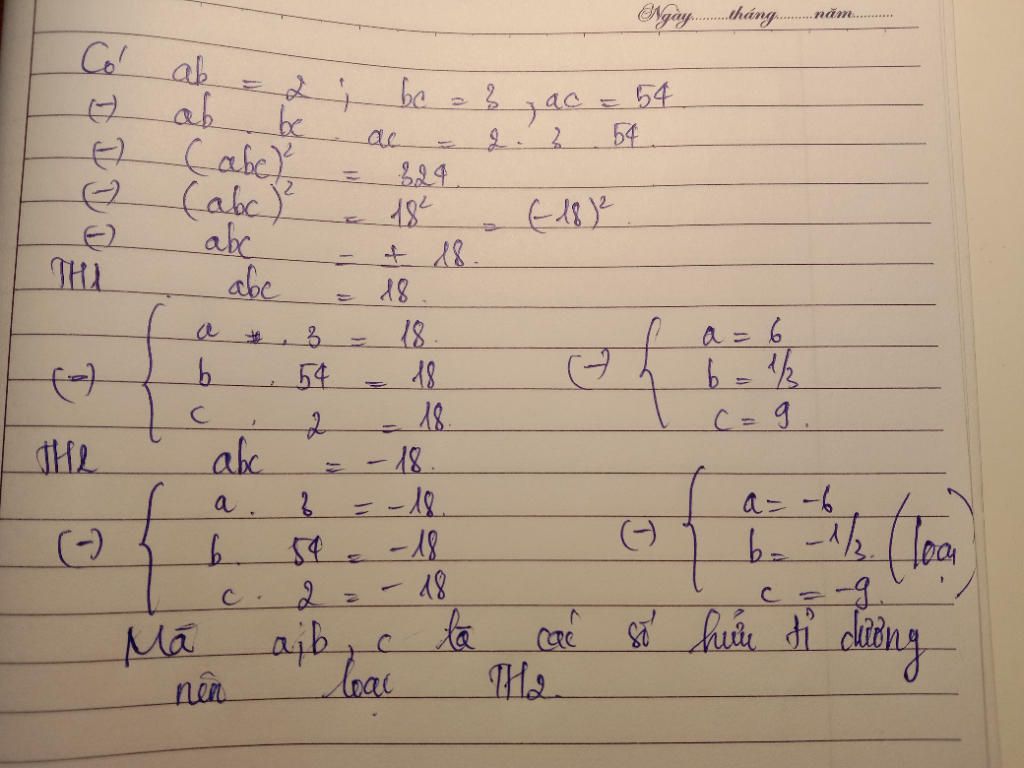 Ngày..........tháng..........năm...........
Có ab = 2 ; bc = 3 , ac = 54
(=) ab . bc . ac = 2 . 3 . 54.
(=) (abc)² = 324.
(=) (abc)² = 18² = (-18)².
(=) abc = ± 18.
TH1 abc = 18.
(=) { a . 3 = 18. (=) { a = 6
b . 54 = 18 b = 1/3
c . 2 = 18. c = 9.
TH2 abc = -18.
(=) { a . 3 = -18. (=) { a = -6
b . 54 = -18 b = -1/3. (loại)
c . 2 = -18 c = -9.
Mà a;b, c là các số hữu tỉ dương
nên loại TH2.